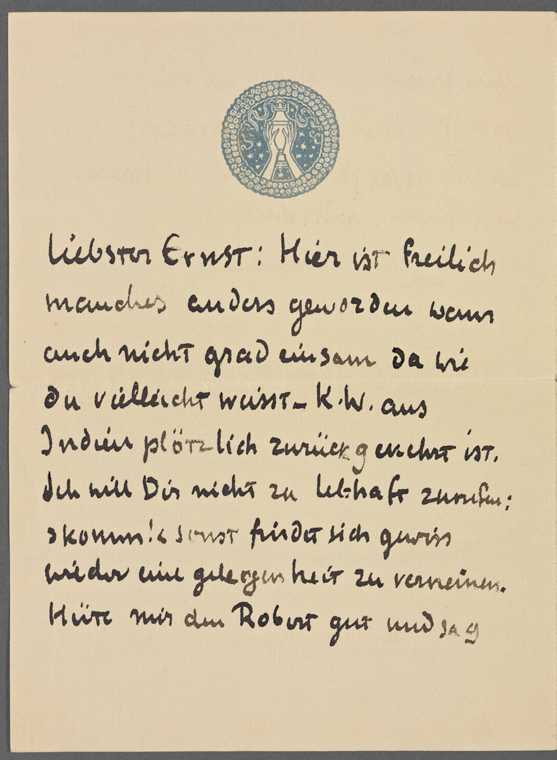 Liebster Ernst: Hier ist freilich
manches anders geworden wenn
auch nicht grad einsam da wie
du vielleicht weisst – K.W. aus
Indien plötzlich zurückgekehrt ist.
Ich will Dir nicht zu lebhaft zurufen:
»komm!« sonst findet sich gewiss
wieder eine gelegenheit zu verneinen.
Hüte mir den Robert gut und sag